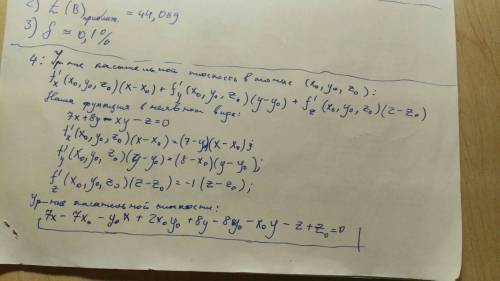 2) z(B) приближ = 44,089
3) δ ≈ 0,1%
4: Ур-ние касательной плоскость в точке (x₀, y₀, z₀):
f'ₓ(x₀,y₀,z₀)(x-x₀) + f'ᵧ(x₀,y₀,z₀)(y-y₀) + f'z(x₀,y₀,z₀)(z-z₀)
Наша функция в неявном виде:
7x+8y-xy-z=0
f'ₓ(x₀,y₀,z₀)(x-x₀)=(7-y₀)(x-x₀);
f'ᵧ(x₀,y₀,z₀)(y-y₀)=(8-x₀)(y-y₀);
f'z(x₀,y₀,z₀)(z-z₀)=-1(z-z₀);
Ур-ние касательной плоскости:
7x-7x₀-y₀x+2x₀y₀+8y-8y₀-x₀y-z+z₀=0